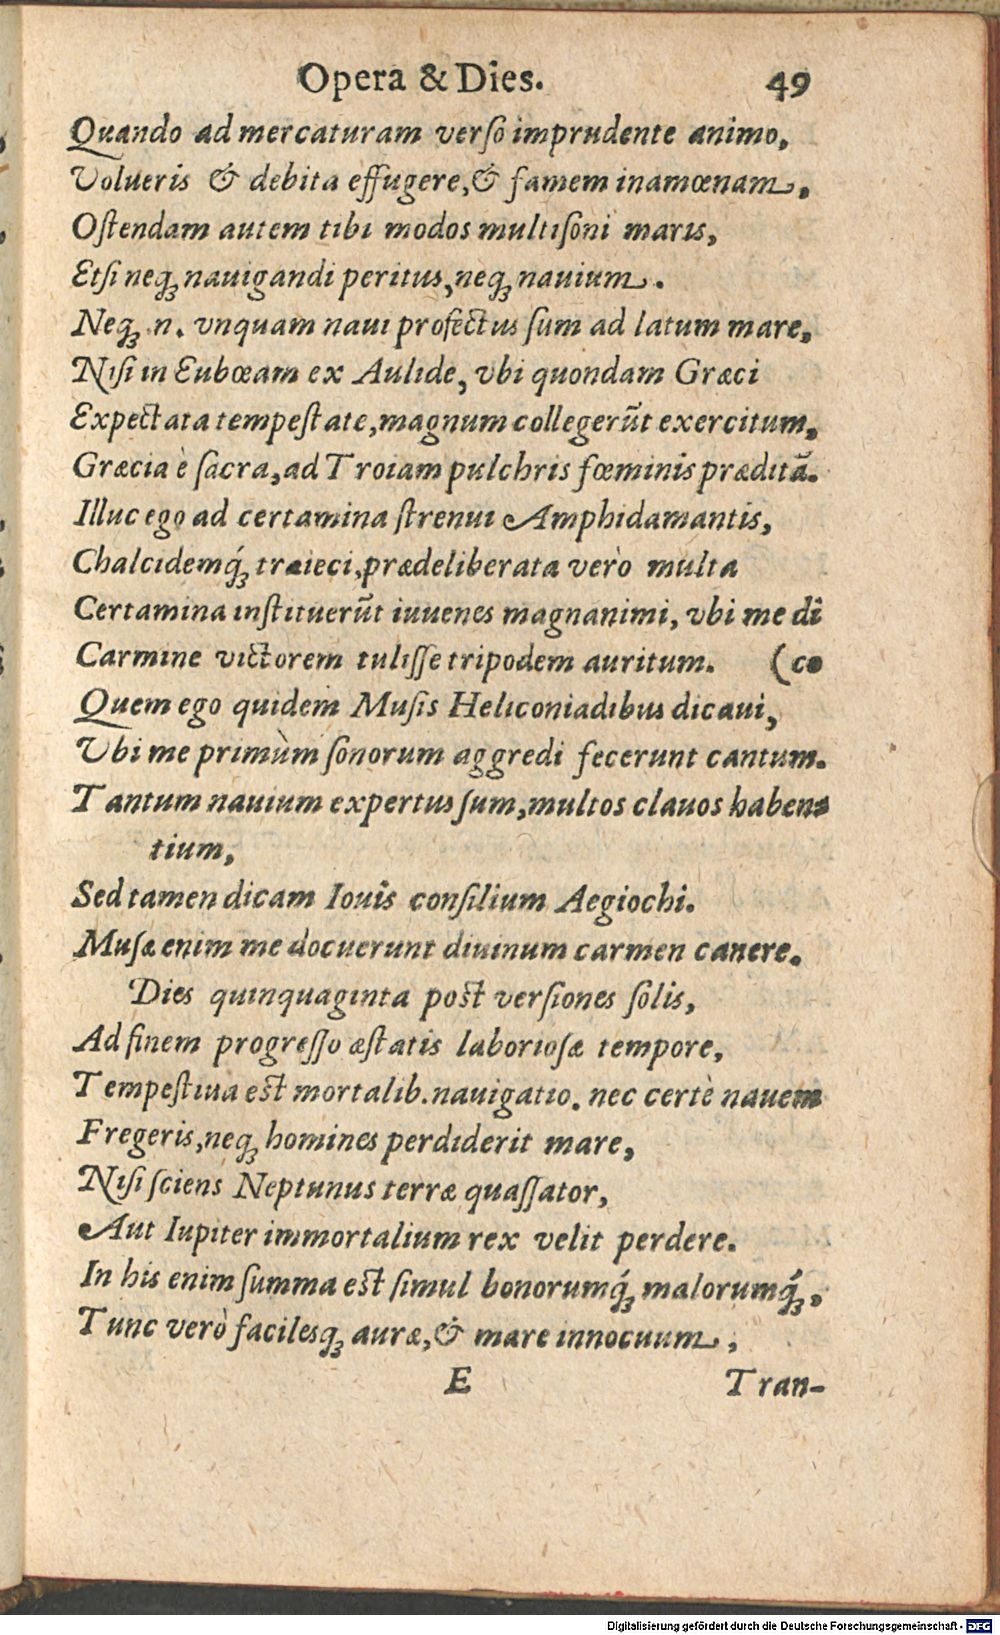 Opera & Dies. 49
Quando ad mercaturam verſo imprudente animo,
Volueris & debita effugere, & famem inamœnam,
Oſtendam autem tibi modos multiſoni maris,
Etſi neq́ꝫ nauigandi peritus, neqꝫ nauium.
Neqꝫ n. vnquam naui profectus ſum ad latum mare,
Niſi in Eubœam ex Aulide, vbi quondam Græci
Expectata tempeſtate, magnum collegerūt exercitum,
Græcia è ſacra, ad Troiam pulchris fœminis præditā.
Illuc ego ad certamina ſtrenui Amphidamantis,
Chalcidemq́ꝫ traieci, prædeliberata verò multa
Certamina inſtituerūt iuuenes magnanimi, vbi me di
Carmine victorem tuliſſe tripodem auritum. (co
Quem ego quidem Muſis Heliconiadibus dicaui,
Vbi me primùm ſonorum aggredi fecerunt cantum.
Tantum nauium expertus ſum, multos clauos haben-
tium,
Sed tamen dicam Iouis conſilium Aegiochi.
Muſæ enim me docuerunt diuinum carmen canere.
Dies quinquaginta poſt verſiones ſolis,
Ad finem progreſſo æſtatis laborioſæ tempore,
Tempeſtiua eſt mortalib. nauigatio. nec certè nauem
Fregeris, neqꝫ homines perdiderit mare,
Niſi ſciens Neptunus terræ quaſſator,
Aut Iupiter immortalium rex velit perdere.
In his enim ſumma eſt ſimul bonorumq́ꝫ malorumq́ꝫ,
Tunc verò facilesqꝫ auræ, & mare innocuum,
E Tran-
Digitalisierung gefördert durch die Deutsche Forschungsgemeinschaft - DFG